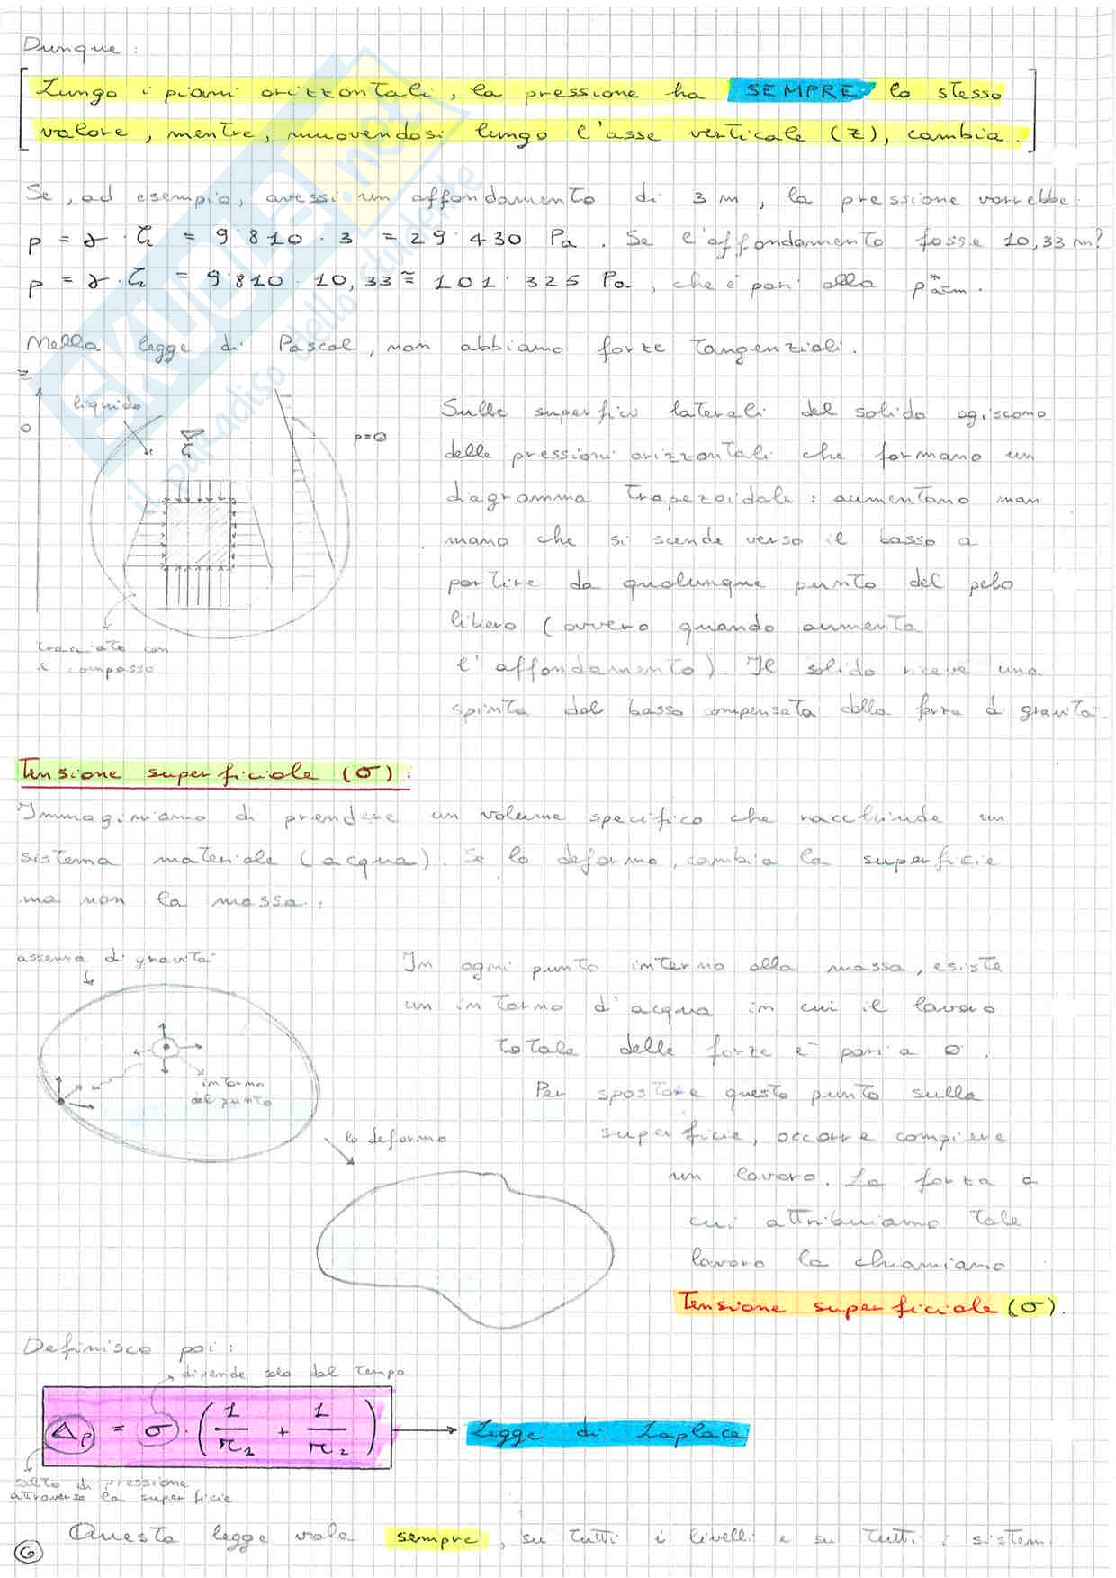 Dunque:
Lungo i piani orizzontali, la pressione ha SEMPRE lo stesso
valore, mentre, muovendosi lungo l'asse verticale (z), cambia.
Se, ad esempio, avessi un affondamento di 3 m, la pressione varrebbe:
p = γ · ζ = 9'810 · 3 = 29'430 Pa. Se l'affondamento fosse 10,33 m?
p = γ · ζ = 9'810 · 10,33 ≅ 101'325 Pa, che è pari alla p*atm.
Nella legge di Pascal, non abbiamo forze tangenziali.
z
liquido
0
p=0
Sulle superfici laterali del solido agiscono
delle pressioni orizzontali che formano un
diagramma trapezoidale: aumentano man
mano che si scende verso il basso a
partire da qualunque punto del pelo
libero (ovvero quando aumenta
l'affondamento). Il solido riceve una
spinta dal basso compensata dalla forza di gravità.
tracciato con
il compasso
Tensione superficiale (σ):
Immaginiamo di prendere un volume specifico che racchiude un
sistema materiale (acqua). Se lo deformo, cambia la superficie
ma non la massa.
assenza di gravità
In ogni punto interno alla massa, esiste
un intorno d'acqua in cui il lavoro
totale delle forze è pari a 0.
intorno
del punto
Per spostare questo punto sulla
superficie, occorre compiere
un lavoro. La forza a
cui attribuiamo tale
lavoro la chiamiamo
Tensione superficiale (σ).
lo deformo
Definisco poi:
dipende solo dal tempo
Δp = σ · (1/r2 + 1/r2)
Legge di Laplace
salto di pressione
attraverso la superficie
Questa legge vale sempre, su tutti i livelli e su tutti i sistemi
6
SKUOLA.net
il paradiso dello studente